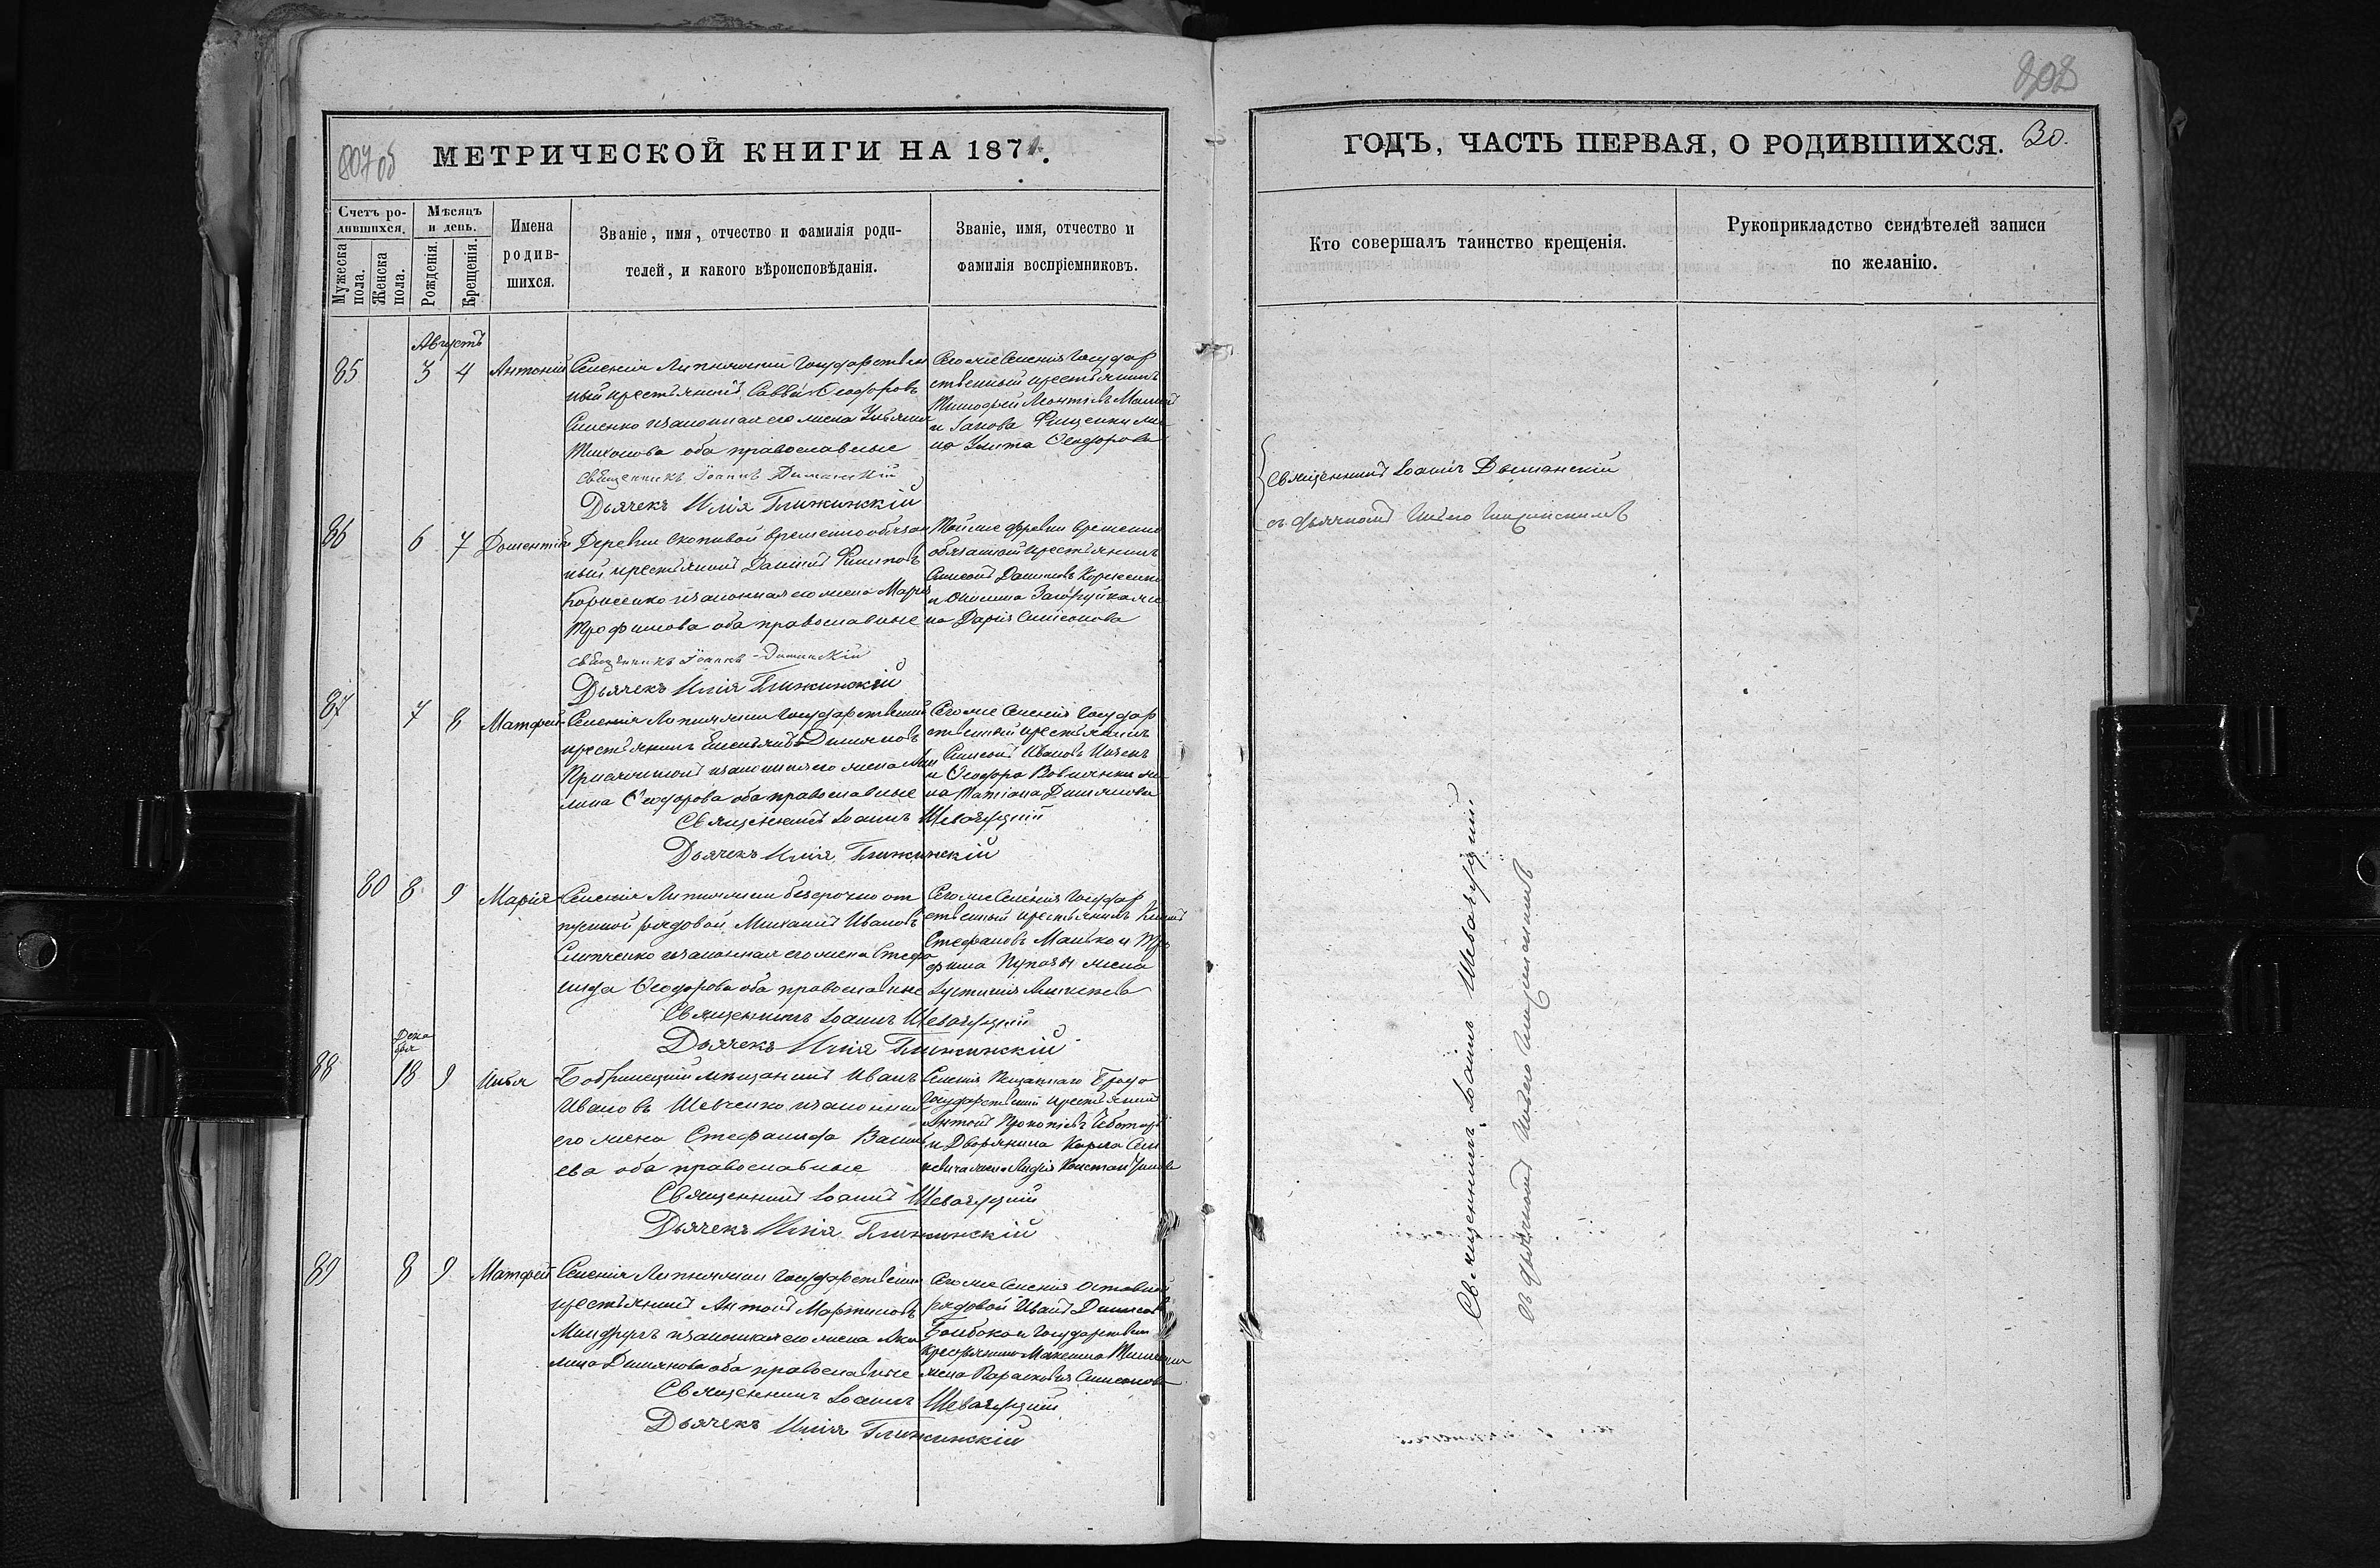 807 об
МЕТРИЧЕСКОЙ КНИГИ НА 1871.
Счетъ ро-
дившихся.
Мѣсяцъ
и день.
Мужеска пола.
Женска пола.
Рожденія.
Крещенія.
Имена
родив-
шихся.
Званіе, имя, отчество и фамилія роди-
телей, и какого вѣроисповѣданія.
Званіе, имя, отчество и
фамилія воспріемниковъ.
Августъ
85 3 4 Антоній
Селенія Липняжки Государствен
ный крестьянинъ Савва Ѳеодоровъ
законная его жена Ульяна
Тихонова оба православные
Священникъ Іоаннъ Диманскій
Дьячекъ Илія Глижинскій
Тогоже Селенія Государ
ственный крестьянинъ
Тимофей Леонтіевъ
и Іакова же
на Улита Ѳеодорова
86 6 7 Дометій
Деревни временнообязан
ный крестьянинъ Даніилъ Филиповъ
Корнеенко законная его жена Марія
Трофимова оба православные
Священникъ Іоаннъ Диманскій
Дьячекъ Илія Глижинскій
Тойже деревни временно
обязанный крестьянинъ
Симеонъ Даниловъ Корнеенко
и Загоруйка же
на Дарія Симеонова
87 7 8 Матфей
Селенія Липняжки Государственный
крестьянинъ Емельянъ Димяновъ
законная его жена Аки
лина Ѳеодорова оба православные
Священникъ Іоаннъ Шевачуцкій
Дьячекъ Илія Глижинскій
Тогоже Селенія Государ
ственный крестьянинъ
Симеонъ Ивановъ
и Ѳеодора же
на Татіана Димянова
80 8 9 Марія
Селенія Липняжки безсрочно от
пускной рядовой Михаилъ Ивановъ
Слипченко законная его жена Стефа
нида Ѳеодорова оба православные
Священникъ Іоаннъ Шевачуцкій
Дьячекъ Илія Глижинскій
Тогоже Селенія Государ
ственный крестьянинъ
Стефановъ Манько и Тро
фима жена
Іустинія
Дека
бря
88 18 9 Илья
Бобринецкій мѣщанинъ Иванъ
Ивановъ Шевченко законная
его жена Стефанида Василь
ева оба православные
Священникъ Іоаннъ Шевачуцкій
Дьячекъ Илія Глижинскій
Селенія Песчаного Брода
Государственный крестьянинъ
Антонъ Прокопіевъ Чеботарь
и Дворянина Карла
жена Лидія Константинова
89 8 9 Матфей
Селенія Липняжки Государственный
крестьянинъ Антонъ Мартиновъ
законная его жена Аки
лина Димянова оба православные
Священникъ Іоаннъ Шевачуцкій
Дьячекъ Илія Глижинскій
Тогоже Селенія Отставной
рядовой Иванъ
и Государствен
крестьянина Максима
жена Параскевія Симеонова
808
ГОДЪ, ЧАСТЬ ПЕРВАЯ, О РОДИВШИХСЯ. 30.
Кто совершалъ таинство крещенія.
Рукоприкладство свидѣтелей записи
по желанію.
Священникъ Іоаннъ Диманскій
съ дьячкомъ Иліею Глижинскимъ
Священникъ Іоаннъ Шевачуцкій
съ дьячкомъ Иліею Глижинскимъ